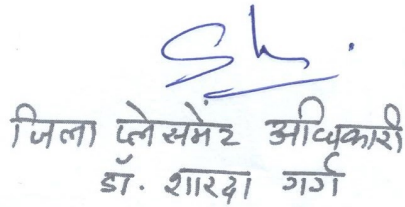 जिला प्लेसमेंट अधिकारी
डॉ. शारदा गर्ग